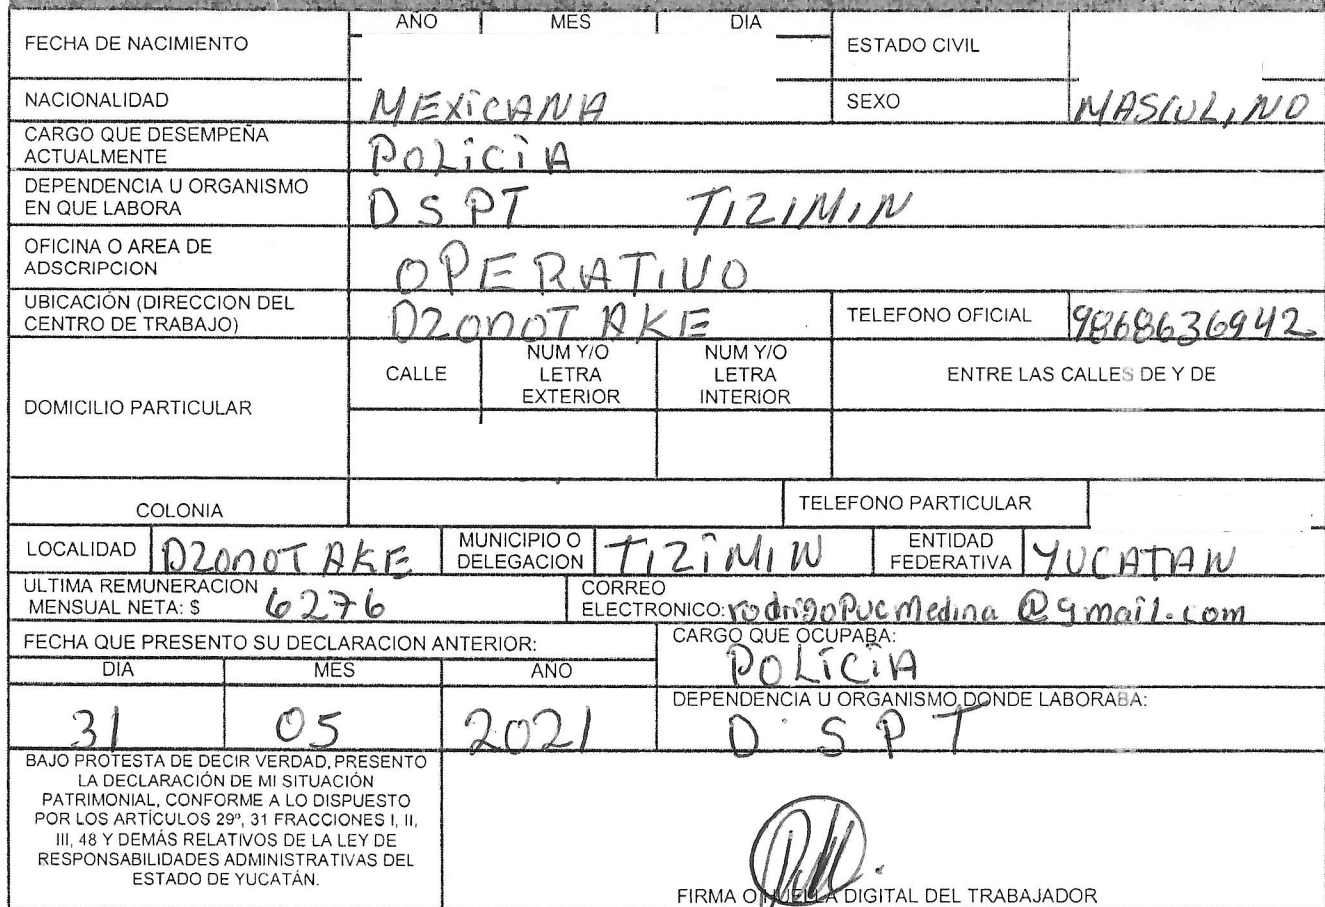 AÑO MES DIA
FECHA DE NACIMIENTO ESTADO CIVIL
NACIONALIDAD MEXICANA SEXO MASCULINO
CARGO QUE DESEMPEÑA
ACTUALMENTE POLICIA
DEPENDENCIA U ORGANISMO
EN QUE LABORA DSPT TIZIMIN
OFICINA O AREA DE
ADSCRIPCION OPERATIVO
UBICACIÓN (DIRECCION DEL
CENTRO DE TRABAJO) DZONOT AKE TELEFONO OFICIAL 9868636942
DOMICILIO PARTICULAR
CALLE
NUM Y/O
LETRA
EXTERIOR
NUM Y/O
LETRA
INTERIOR
ENTRE LAS CALLES DE Y DE
COLONIA TELEFONO PARTICULAR
LOCALIDAD DZONOT AKE
MUNICIPIO O
DELEGACION TIZIMIN
ENTIDAD
FEDERATIVA YUCATAN
ULTIMA REMUNERACION
MENSUAL NETA: $ 6276
CORREO
ELECTRONICO: rodrigoPucMedina @gmail.com
FECHA QUE PRESENTO SU DECLARACION ANTERIOR:
DIA MES AÑO
31 05 2021
CARGO QUE OCUPABA:
POLICIA
DEPENDENCIA U ORGANISMO DONDE LABORABA:
D S P T
BAJO PROTESTA DE DECIR VERDAD, PRESENTO
LA DECLARACIÓN DE MI SITUACIÓN
PATRIMONIAL, CONFORME A LO DISPUESTO
POR LOS ARTÍCULOS 29º, 31 FRACCIONES I, II,
III, 48 Y DEMÁS RELATIVOS DE LA LEY DE
RESPONSABILIDADES ADMINISTRATIVAS DEL
ESTADO DE YUCATÁN.
FIRMA O HUELLA DIGITAL DEL TRABAJADOR